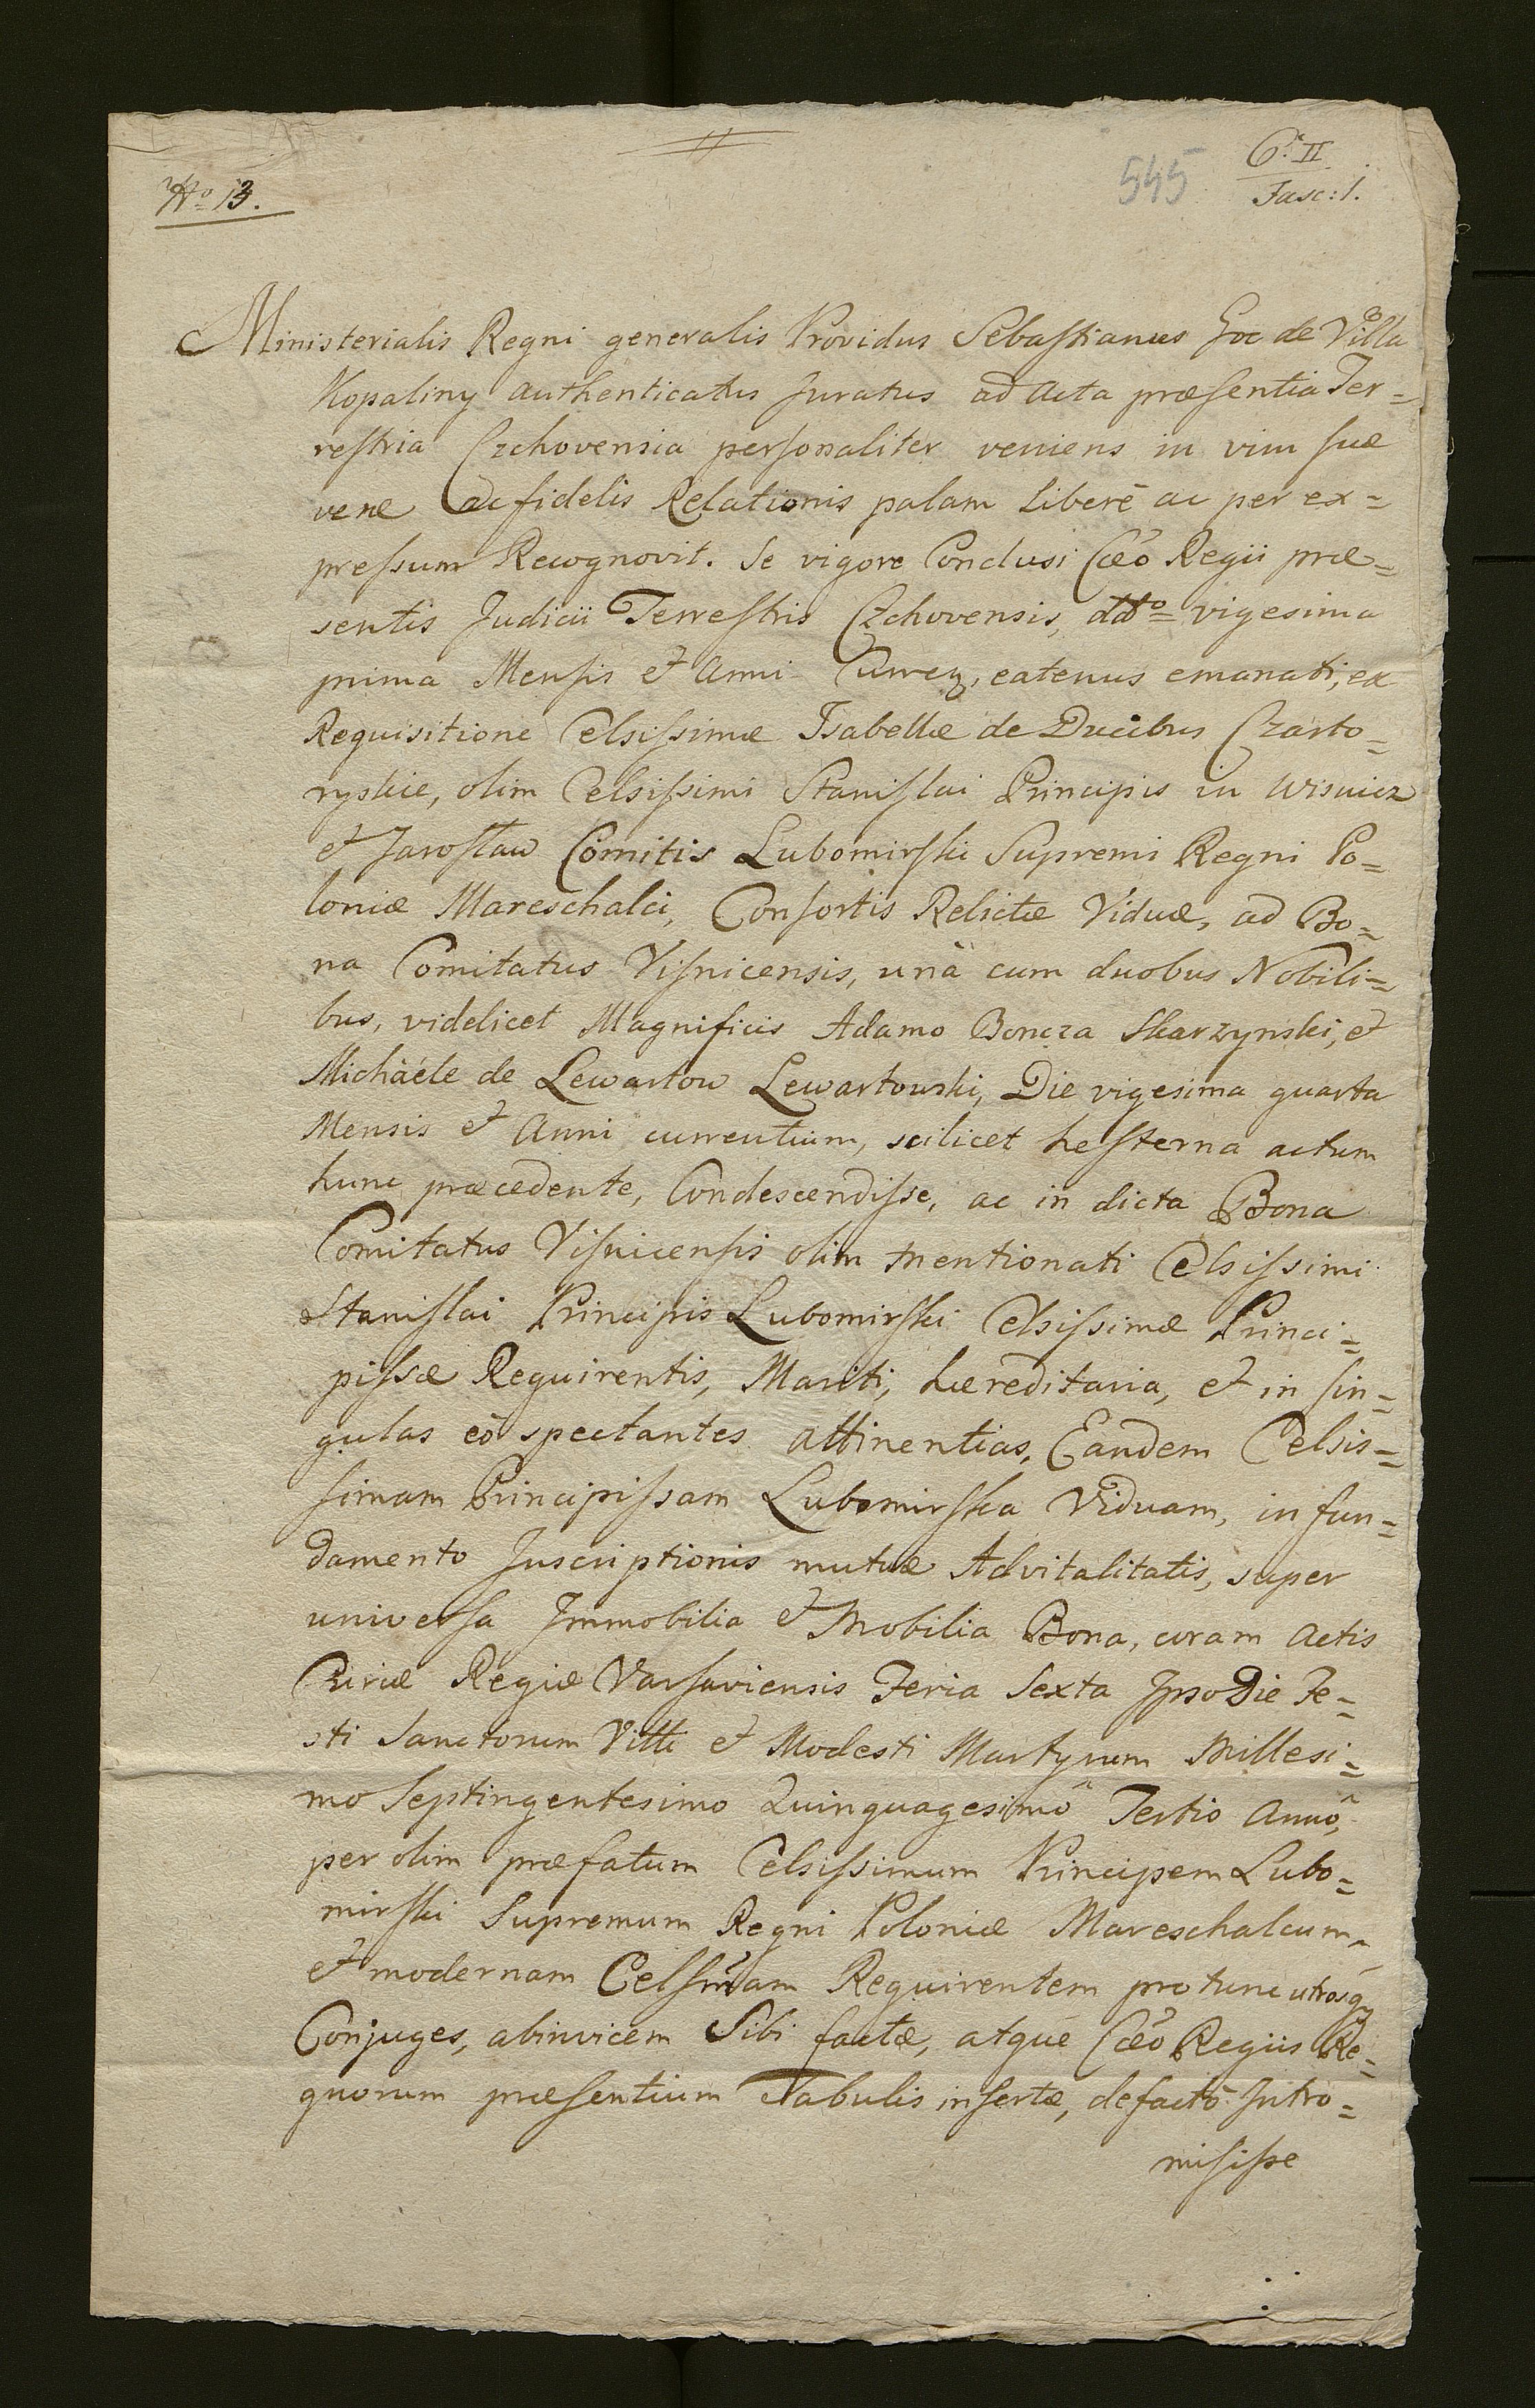 No 13.
545
C. II
Fasc: 1.
Ministerialis Regni generalis Providus Sebastianus de Villa
Kopaliny authenticatus Juratus ad Acta præsentia Ter=
restria Czchovensia personaliter veniens in vim suæ
veræ ac fidelis Relationis palam liberè ac per ex=
pressum Recognovit. Se vigore Conclusi Cæo Regii præ=
sentis Judicii Terrestris Czchovensis, ddto vigesima
prima Mensis et Anni Curren, eatenus emanati, ex
Requisitione Celsissimæ Isabellæ de Ducibus Czarto=
ryskie, olim Celsissimi Stanislai Principis in Wisnicz
et Jaroslaw Comitis Lubomirski Supremi Regni Po=
loniæ Mareschalci, Consortis Relictæ Viduæ, ad Bo=
na Comitatus Visnicensis, unà cum duobus Nobili=
bus, videlicet Magnificis Adamo Boncza Skarzynski, et
Michaéle de Lewartow Lewartowski, Die vigesima quarta
Mensis et Anni currentium, scilicet hesterna actum
hunc præcedente, Condescendisse, ac in dicta Bona
Comitatus Visnicensis olim mentionati Celsissimi
Stanislai Principis Lubomirski Celsissimæ Princi=
pissæ Requirentis, Mariti, hæreditaria, et in sin=
gulas eò spectantes attinentias, Eandem Celsis=
simam Principissam Lubomirska Viduam, in fun=
damento Inscriptionis mutuæ Advitalitatis, super
universa Immobilia et Mobilia Bona, coram Actis
Curiæ Regiæ Varsaviensis Feria Sexta Ipso Die Fe=
sti Sanctorum Viti et Modesti Martyrum Millesi=
mo Septingentesimo Quinquagesimo Tertio Annô,
per olim præfatum Celsissimum Principem Lubo=
mirski Supremum Regni Poloniæ Mareschalcum,
et modernam Celsmam Requirentem pro tunc utrosq
Conjuges, abinvicem Sibi factæ, atque Cæo Regiis Re=
gnorum præsentium Tabulis insertæ, de facto Intro=
misisse